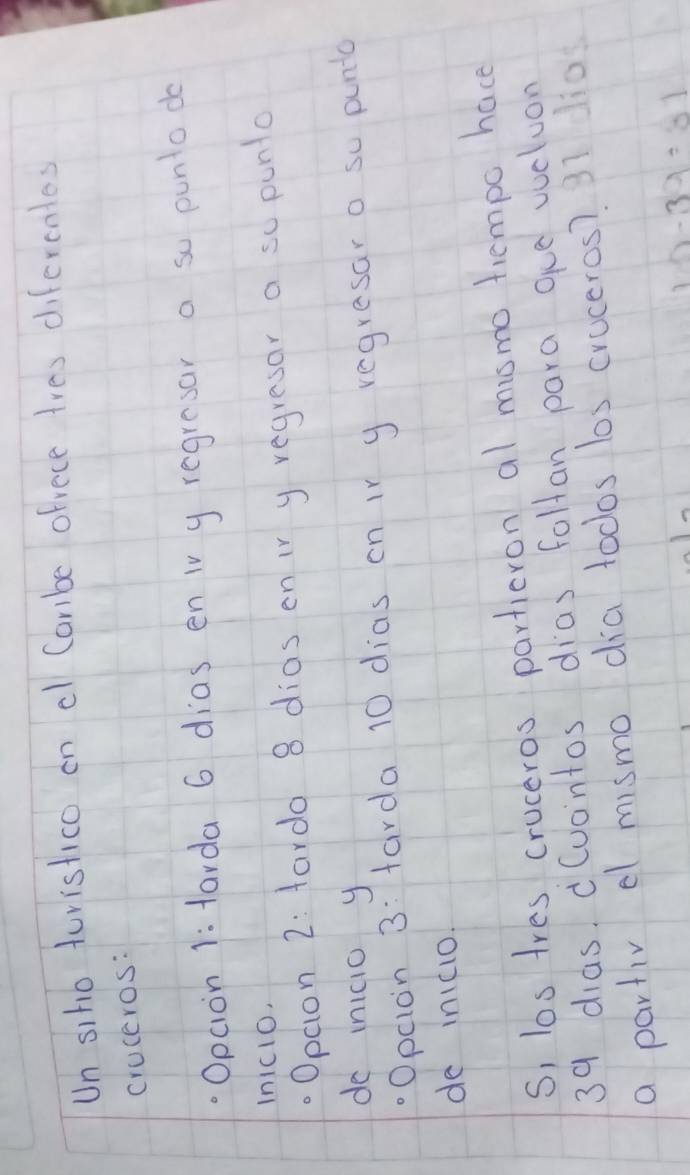 Un sitio turístico en el Caribe ofrece tres diferentes
cruceros:
• Opción 1: tarda 6 días en ir y regresar a su punto de
inicio.
• Opcion 2: tarda 8 días en ir y regresar a su punto
de inicio y
• Opción 3: tarda 10 días en ir y regresar a su punto
de inicio.
Si los tres cruceros partieron al mismo tiempo hace
39 dias. ¿Cuántos dias faltan para que vuelvan
a partir el mismo día todos los cruceros?. 81 dias
-39=81